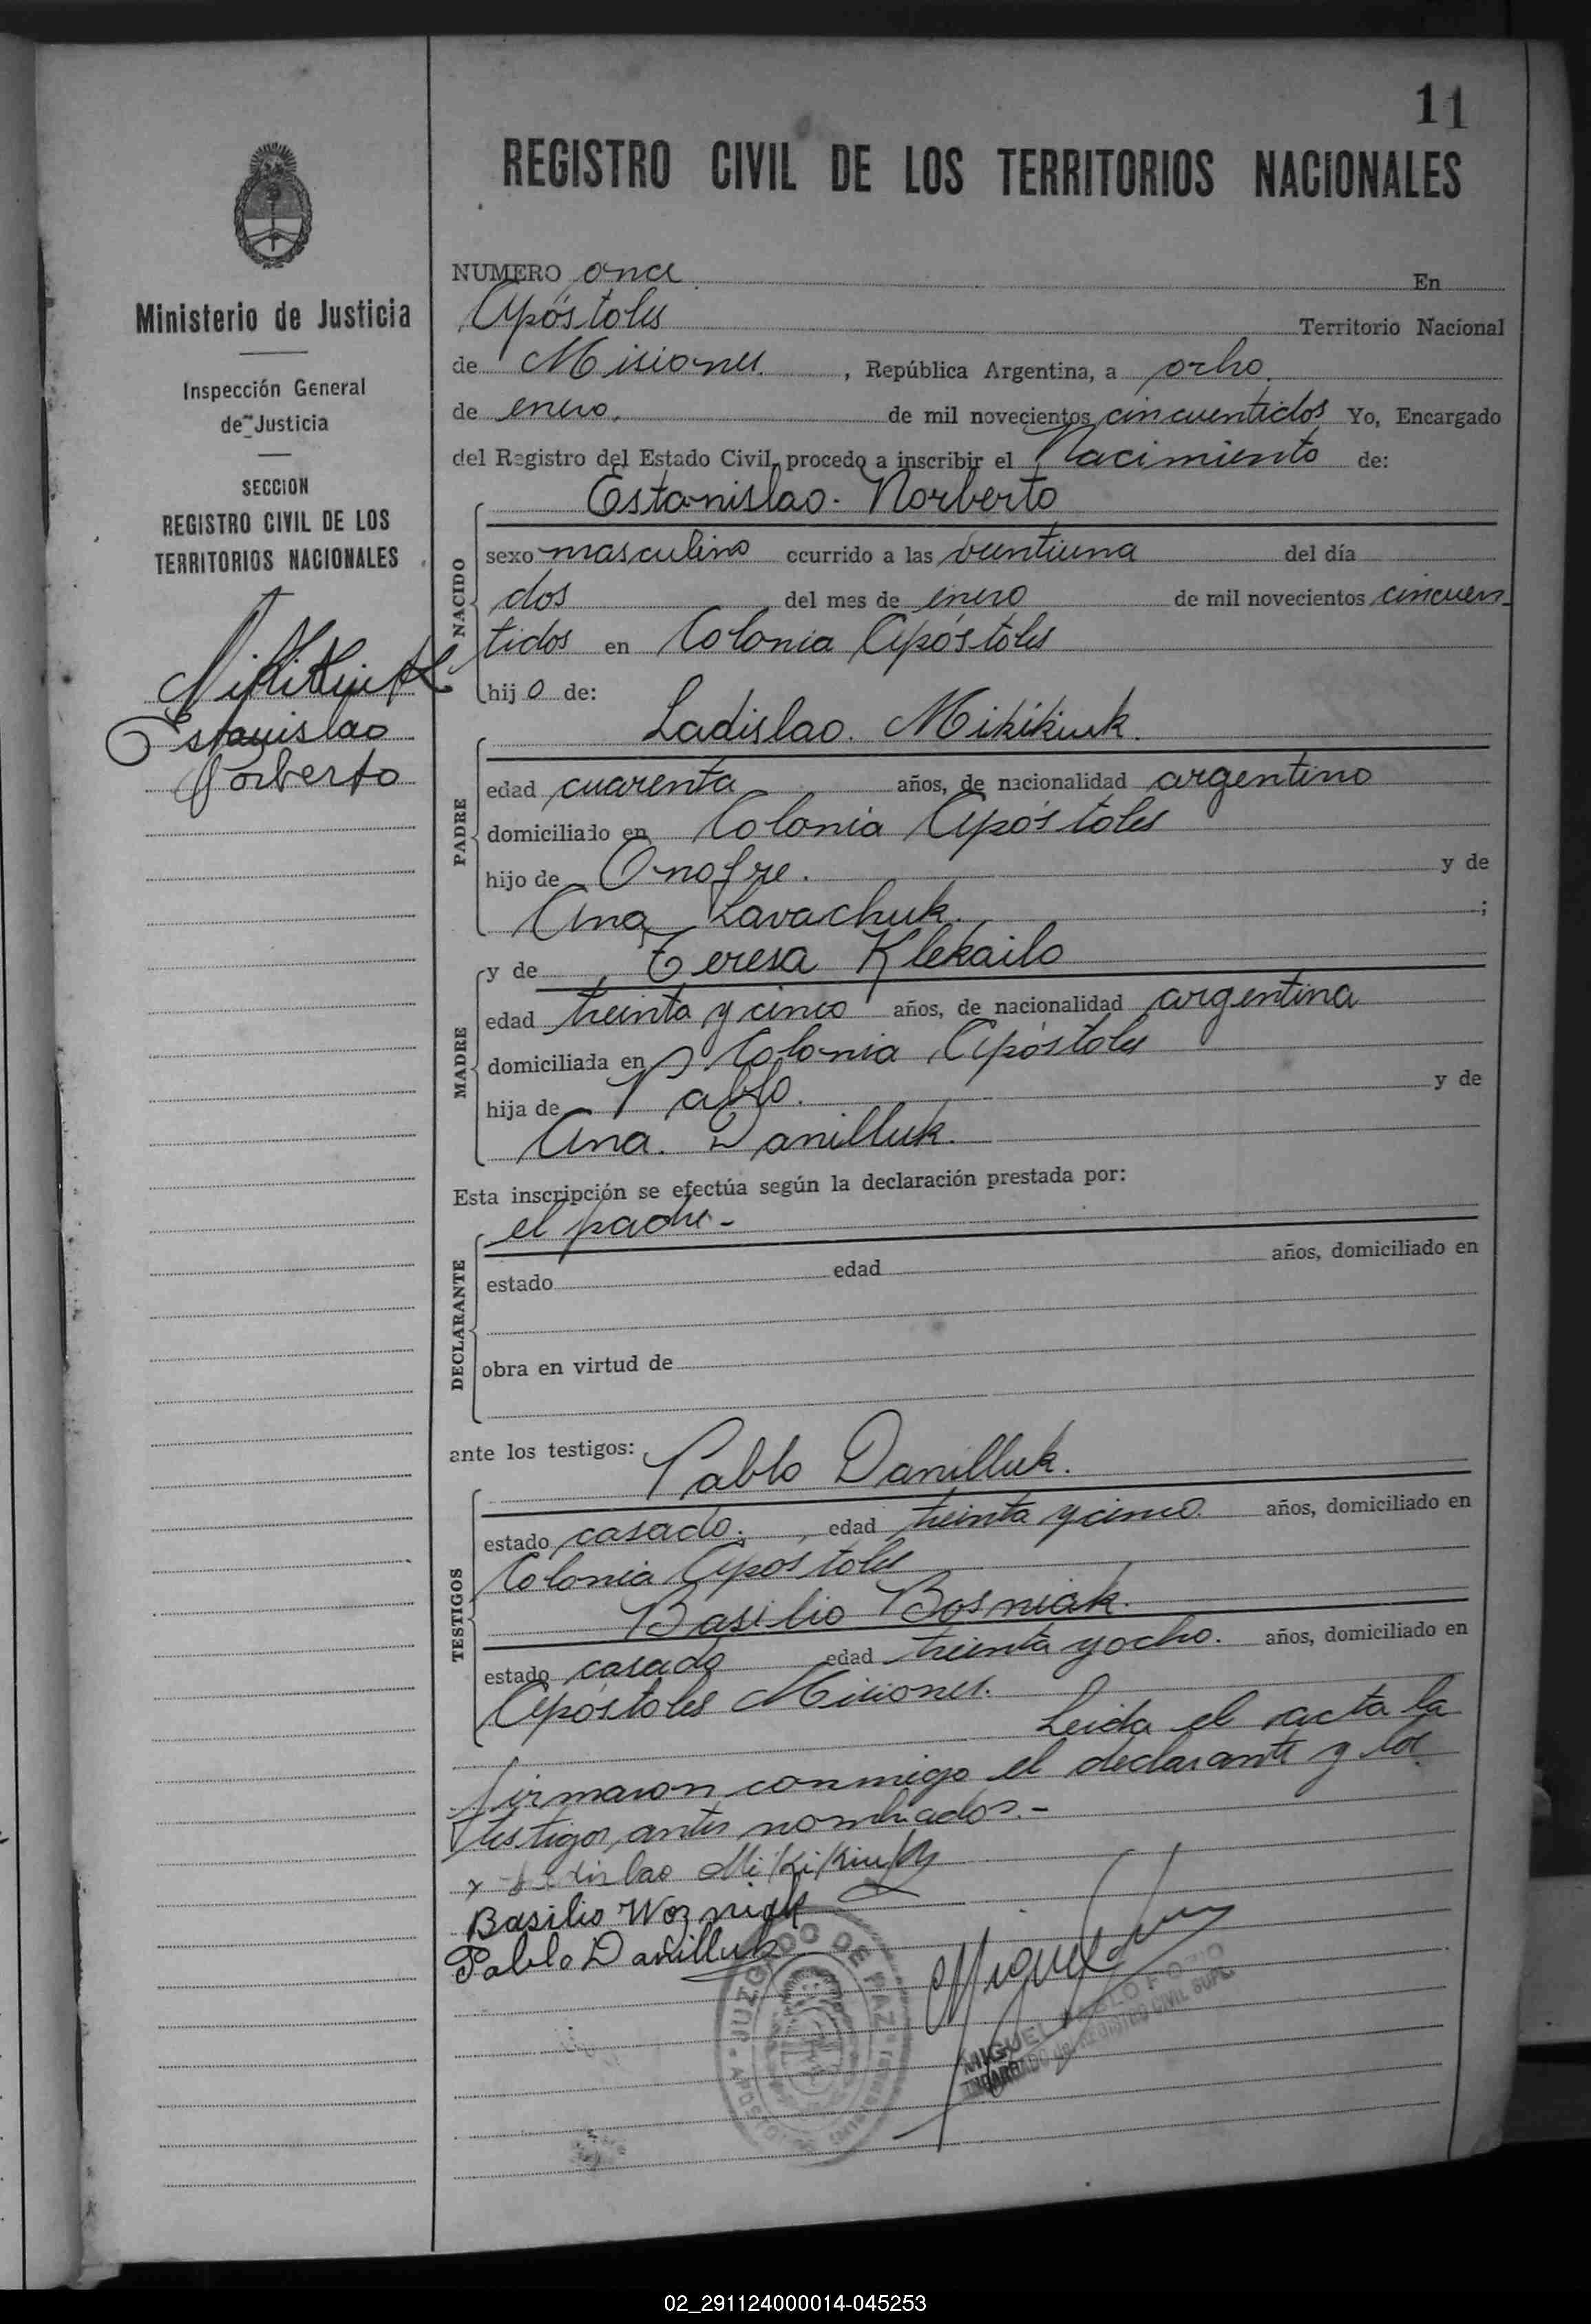 11
REGISTRO CIVIL DE LOS TERRITORIOS NACIONALES
Ministerio de Justicia
Inspección General
de Justicia
SECCION
REGISTRO CIVIL DE LOS
TERRITORIOS NACIONALES
Mikikiuk
Estanislao
Norberto
NUMERO once En
Apóstoles Territorio Nacional
de Misiones. , República Argentina, a ocho.
de enero. de mil novecientos cincuentidos Yo, Encargado
del Registro del Estado Civil, procedo a inscribir el Nacimiento de:
NACIDO
Estanislao. Norberto
sexo masculino ocurrido a las veintiuna del día
dos del mes de enero de mil novecientos cincuen-
tidos en Colonia Apóstoles
hijo de:
PADRE
Ladislao. Mikikiuk.
edad cuarenta años, de nacionalidad argentino
domiciliado en Colonia Apóstoles
hijo de Onofre. y de
Ana Lavachuk. ;
MADRE
y de Teresa Klekailo
edad treinta y cinco años, de nacionalidad argentina
domiciliada en Colonia Apóstoles
hija de Pablo. y de
Ana. Danilluk.
Esta inscripción se efectúa según la declaración prestada por:
DECLARANTE
el padre.-
estado edad años, domiciliado en
obra en virtud de
ante los testigos: Pablo Danilluk.
TESTIGOS
estado casado. edad treinta y cinco. años, domiciliado en
Colonia Apóstoles
Basilio Bosniak.
estado casado edad treinta y ocho. años, domiciliado en
Apóstoles Misiones.
Leida el acta la
firmaron conmigo el declarante y los
testigos antes nombrados.-
x Ladislao Mikikiuk
Basilio Wozniak
Pablo Danilluk
JUZGADO DE PAZ
APOSTOLES
Miguel
MIGUEL PABLO
ENCARGADO del REGISTRO CIVIL SUPL.
02_291124000014-045253